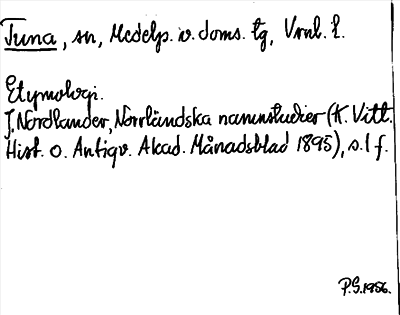 Tuna, sn, Medelp. v. doms. tg, Vrnl. l.
Etymologi.
J. Nordlander, Norrländska namnstudier (K. Vitt.
Hist. o. Antiqv. Akad. Månadsblad 1895), s. 1 f.
P.G. 1956.